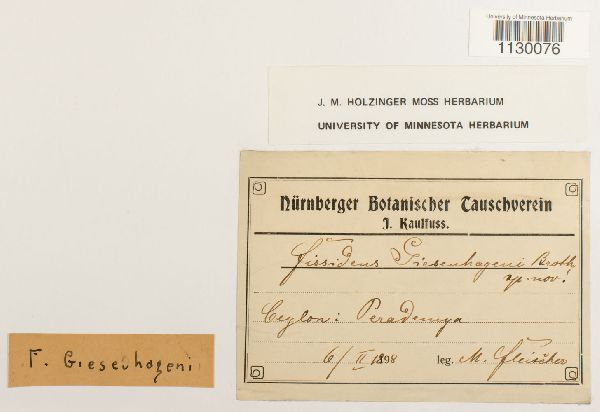 University of Minnesota Herbarium
1130076
J. M. HOLZINGER MOSS HERBARIUM
UNIVERSITY OF MINNESOTA HERBARIUM
Nürnberger Botanischer Tauschverein
J. Kaulfuss.
Fissidens Giesenhageni Broth.
sp. nov!
Ceylon: Peradenya
6/II 1898 leg. M. Fleischer
F. Giesenhageni